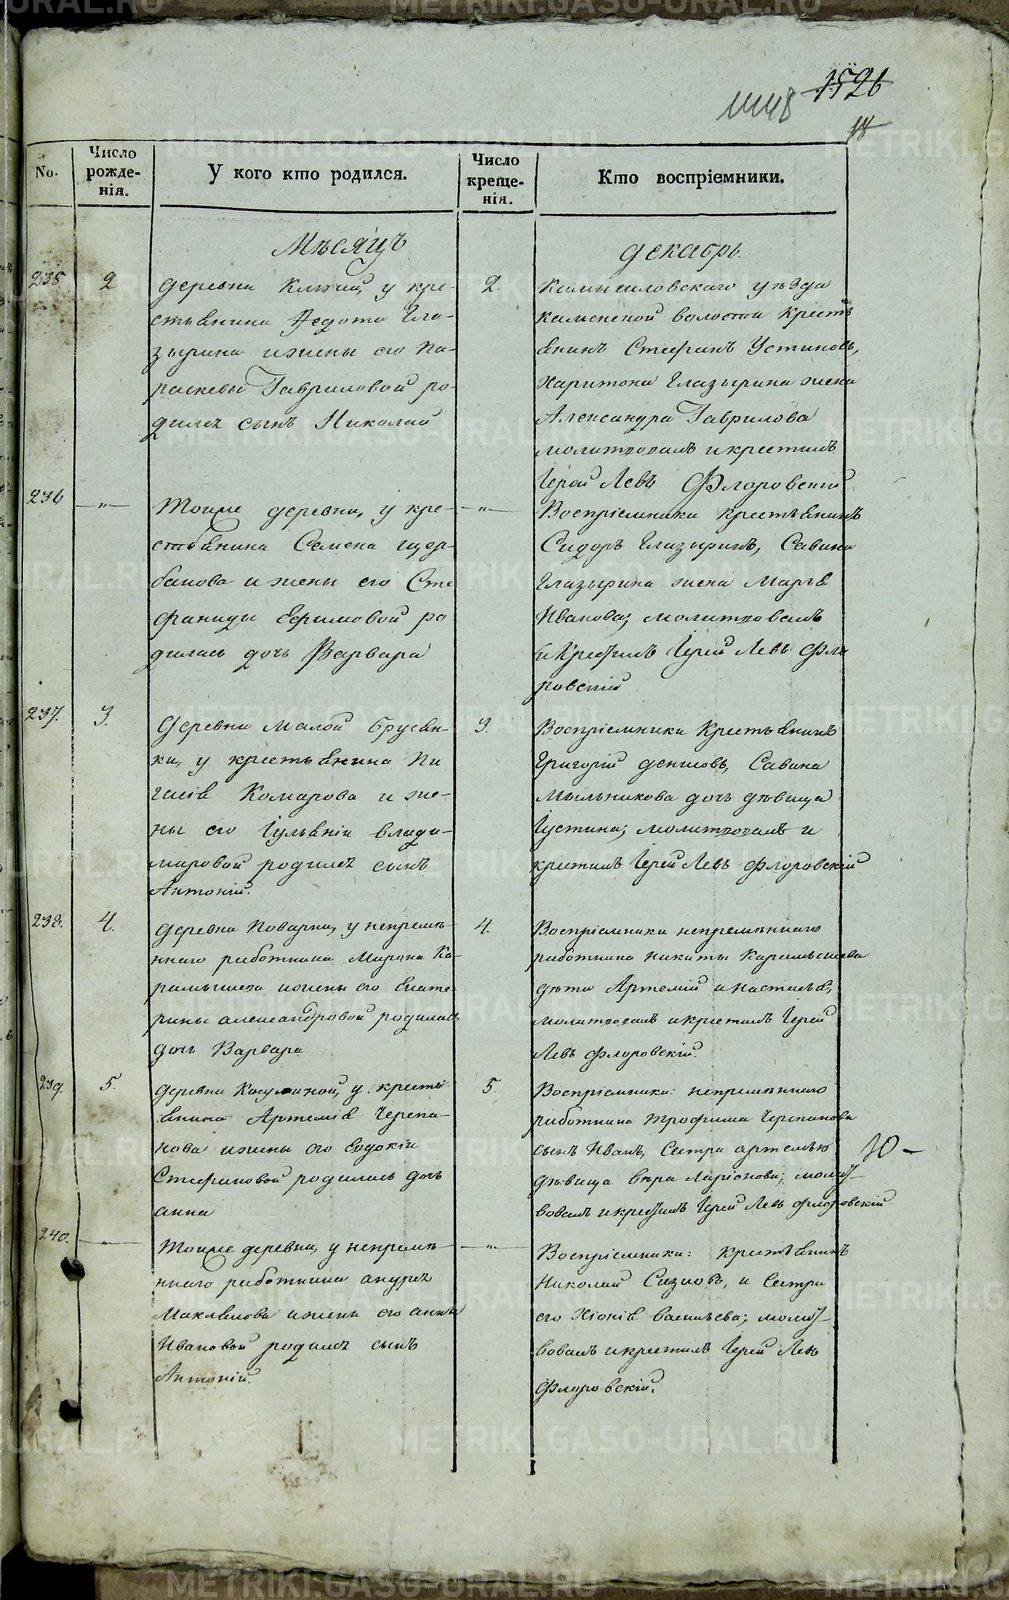 1526
1148
18
No.
Число рожде-нія.
У кого кто родился.
Число креще-нія.
Кто воспріемники.
Мѣсяцъ
декабрь.
235
2
деревни Ключей, у кре-
стьянина Федота Гла-
зырина и жены его Па-
расковьи Гавриловой ро-
дился сынъ Николай
2.
Камышловскаго уѣзда
волости крестья
янинъ Стефанъ Устиновъ,
Харитона Глазырина жена
Александра Гаврилова
молитвовалъ и крестилъ
Іерей Левъ Флоровскій
236
—„—
Тоиже деревни, у кре-
стьянина Семена Щер-
бакова и жены его Сте
фаниды Ефимовой ро
дилась дочь Варвара
—„—
Воспріемники крестьянинъ
Сидоръ Глазыринъ, Савина
Глазырина жена Марья
Иванова; молитвовалъ
и крестилъ Іерей Левъ Фло
ровскій
237.
3.
деревни Малой Брусян-
ки, у крестьянина Пи
Комарова и же-
ны его Іуліаніи Влади-
мировой родился сынъ
Антоній.
3.
Воспріемники крестьянинъ
Григорій Денисовъ, Савина
Мыльникова дочь дѣвица
Іустина; молитвовалъ и
крестилъ Іерей Левъ Флоровскій
238.
4.
деревни Поварни, у непремѣ-
ннаго работника Мирона Ка-
рамышева и жены его Екате-
рины Александровой родилась
дочь Варвара
4.
Воспріемники непремѣннаго
работника Никиты Карамышева
дѣти Артемій и Настасья,
молитвовалъ и крестилъ Іерей
Левъ Флоровскій.
239.
5.
деревни Косулиной, у кресть
янина Артемія Черепа-
нова и жены его Евдокіи
Стефановой родилась дочь
Анна
5
Воспріемники: непремѣннаго
работника Трофима Черепанова
сынъ Иванъ, Сестра Артемья
дѣвица Вѣра Ларіонова; молит-
вовалъ и крестилъ Іерей Левъ Флоровскій
240.
—„—
Тоиже деревни, у непремѣ-
ннаго работника Андрея
и жены его Анны
Ивановой родился сынъ
Антоній.
—„—
Воспріемники: крестьянинъ
Николай Сазновъ, и Сестра
его Хіонія Васильева; молит-
вовалъ и крестилъ Іерей Левъ
Флоровскій.
METRIKI.GASO-URAL.RU